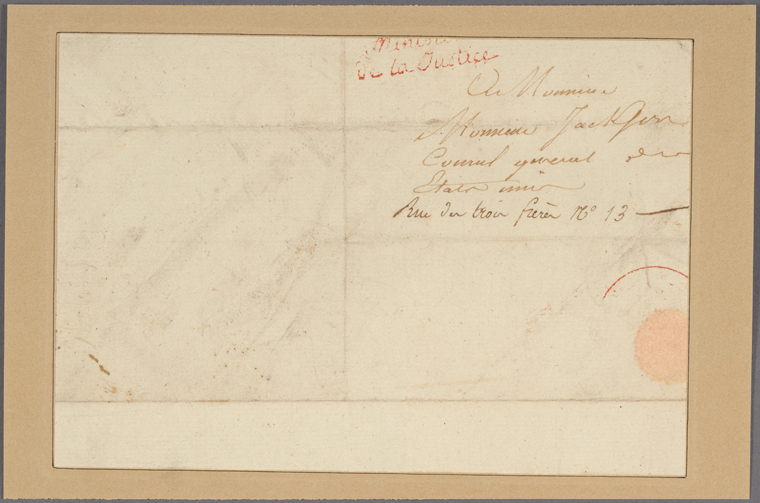 Minist
De la Justice
A Monsieur
Monsieur Jackson
Consul general des
Etats unis
Rue des trois freres N° 13